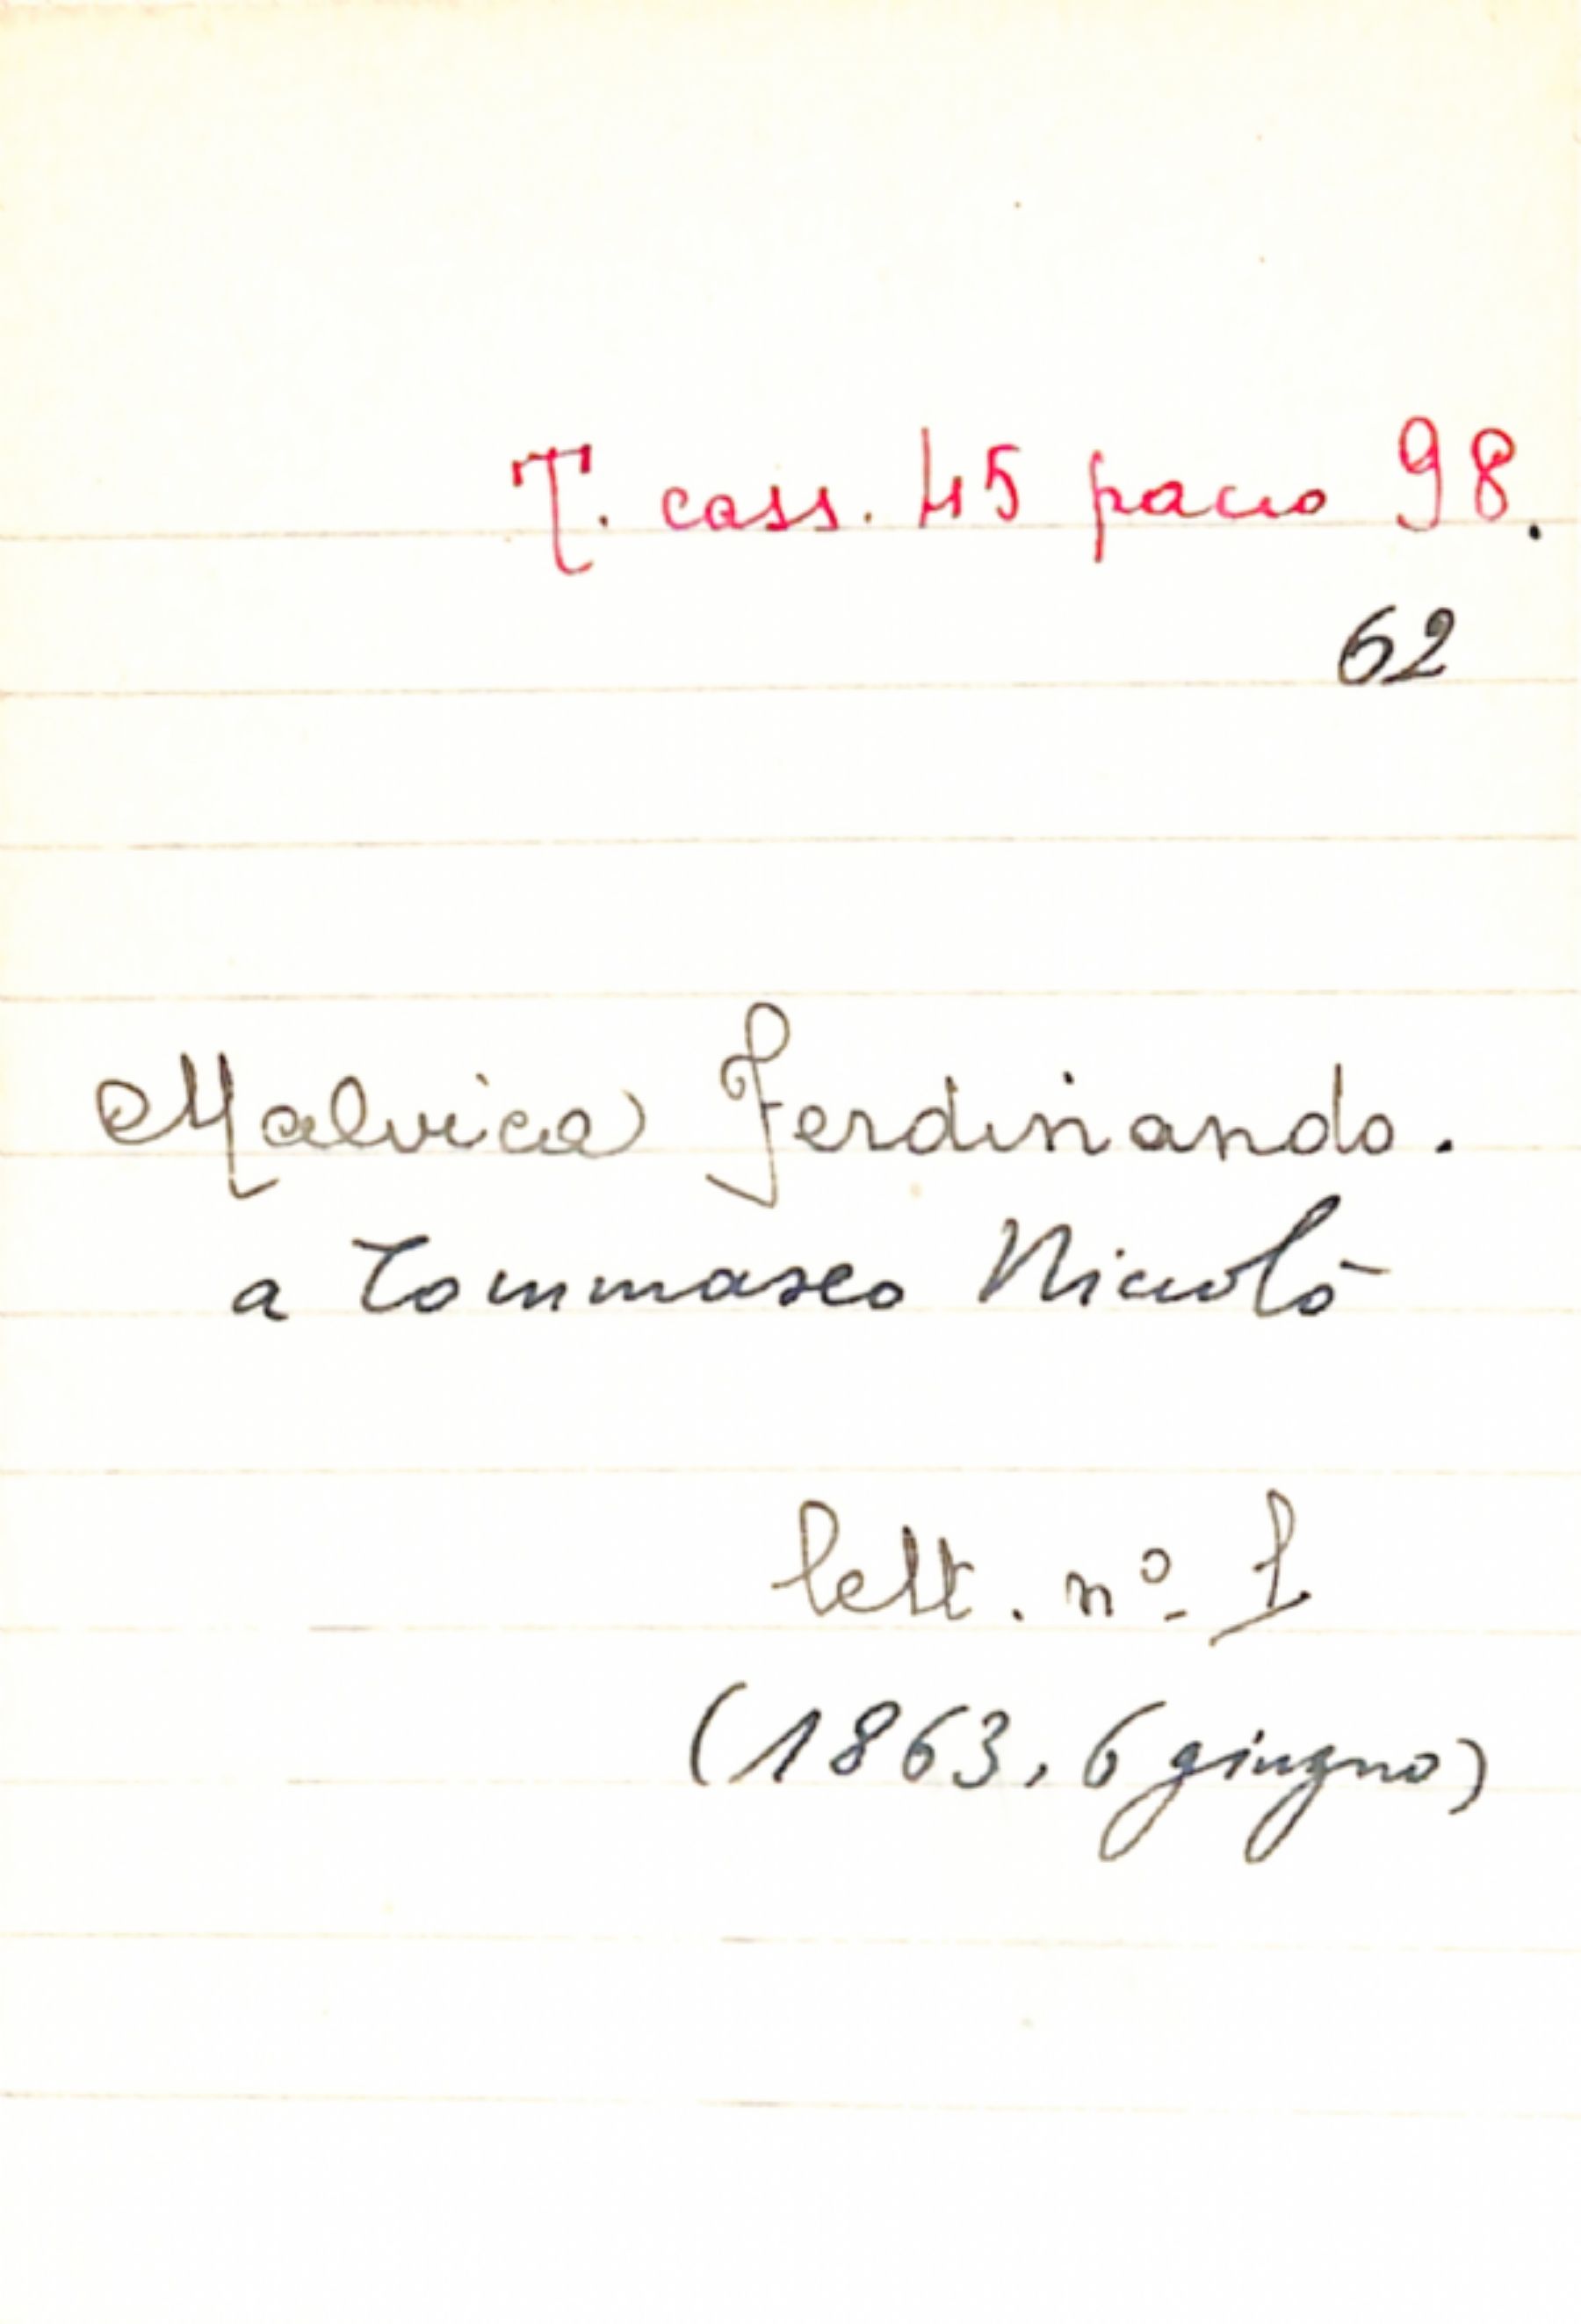 T. cass. 45 pacco 98.
62
Malvica Ferdinando.
a Tommaseo Niccolò
lett. nº 1
(1863, 6 giugno)